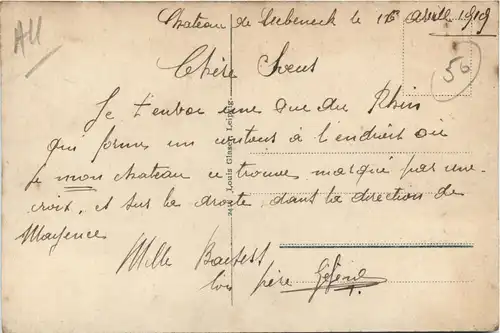 Chateau de Liebeneck le 16 Avril 1919
All
50
Chère Soeur
Je t'envoie une vue du Rhin
qui forme un contour à l'endroit où
mon chateau ce trouve marqué par une
croix, et sur la droite dans la direction de
Mayence
Mille Baisers
ton frère
Louis Glaser, Leipzig.